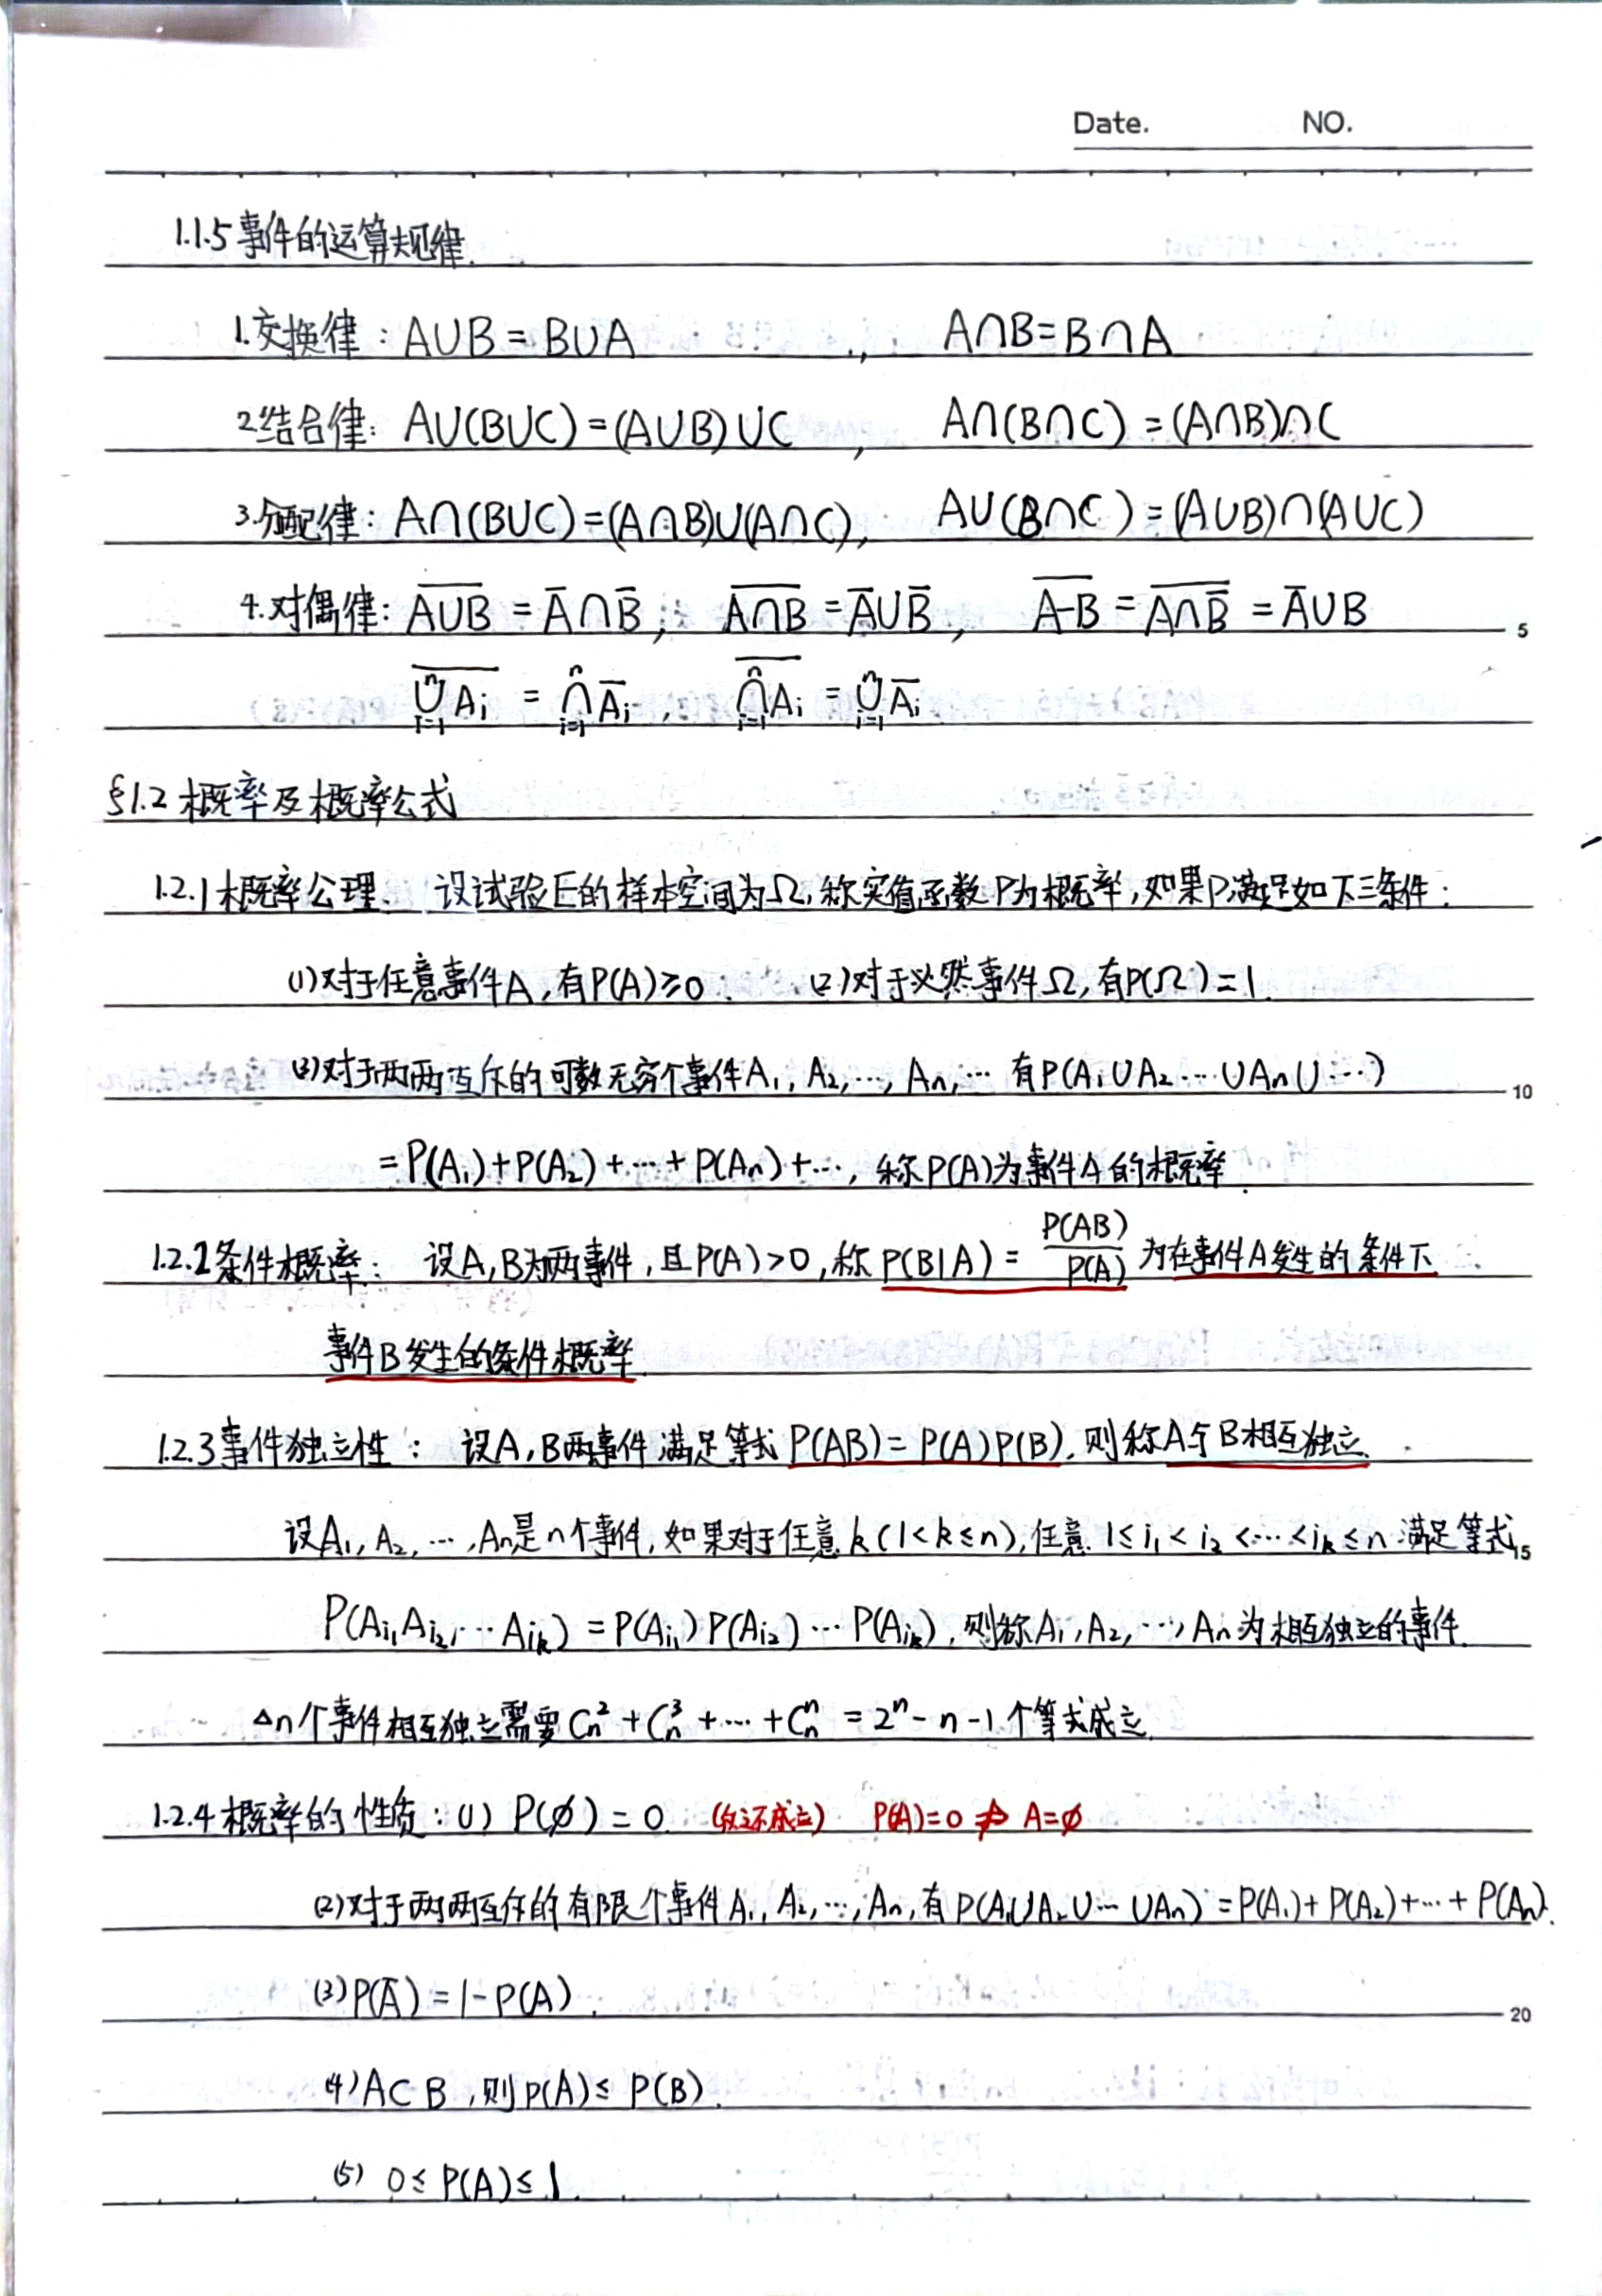 Date. NO.
1.1.5 事件的运算规律.
1.交换律：A∪B=B∪A ， A∩B=B∩A
2.结合律：A∪(B∪C)=(A∪B)∪C ， A∩(B∩C)=(A∩B)∩C
3.分配律：A∩(B∪C)=(A∩B)∪(A∩C)， A∪(B∩C)=(A∪B)∩(A∪C)
4.对偶律：\overline{A∪B}=\overline{A}∩\overline{B}， \overline{A∩B}=\overline{A}∪\overline{B}， \overline{A-B}=\overline{A∩\overline{B}}=\overline{A}∪B
5
\overline{\bigcup_{i=1}^{n}A_i}=\bigcap_{i=1}^{n}\overline{A_i}， \overline{\bigcap_{i=1}^{n}A_i}=\bigcup_{i=1}^{n}\overline{A_i}
§1.2 概率及概率公式
1.2.1 概率公理. 设试验E的样本空间为Ω,称实值函数P为概率,如果P满足如下三条件：
(1)对于任意事件A,有P(A)≥0. (2)对于必然事件Ω,有P(Ω)=1.
(3)对于两两互斥的可数无穷个事件A₁, A₂, …, Aₙ, … 有P(A₁∪A₂…∪Aₙ∪…)
10
=P(A₁)+P(A₂)+…+P(Aₙ)+…, 称P(A)为事件A的概率.
1.2.2 条件概率： 设A,B为两事件,且P(A)>0,称P(B|A)=\frac{P(AB)}{P(A)}为在事件A发生的条件下
事件B发生的条件概率.
1.2.3 事件独立性： 设A,B两事件满足等式P(AB)=P(A)P(B).则称A与B相互独立.
设A₁, A₂, …, Aₙ是n个事件,如果对于任意k(1<k≤n),任意 1≤i₁<i₂<…<iₖ≤n 满足等式
15
P(A_{i₁}A_{i₂}…A_{iₖ})=P(A_{i₁})P(A_{i₂})…P(A_{iₖ}),则称A₁, A₂, …, Aₙ为相互独立的事件.
△n个事件相互独立需要Cₙ²+Cₙ³+…+Cₙⁿ=2ⁿ-n-1个等式成立.
1.2.4 概率的性质：(1) P(∅)=0. P(A)=0 ⇏ A=∅
(2)对于两两互斥的有限个事件A₁, A₂, …, Aₙ,有P(A₁∪A₂∪…∪Aₙ)=P(A₁)+P(A₂)+…+P(Aₙ).
(3)P(\overline{A})=1-P(A).
20
(4)A⊂B,则P(A)≤P(B).
(5) 0≤P(A)≤1